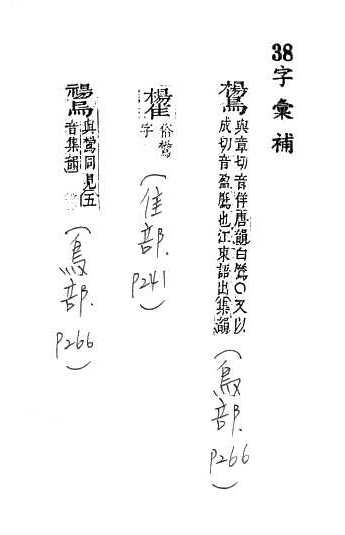 38字彙補
與章切音佯唐韻白鷢〇又以
成切音盈鷢也江東語出集韻
(鳥部.
P266)
俗
字
(隹部.
P241)
與同見五
音集韻
(鳥部.
P266)